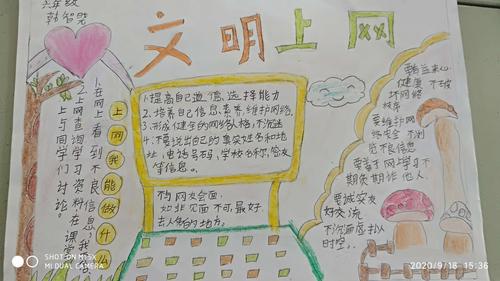 六年级
韩智尧
文明上网
上网我能做什么
1.在网上看到不良信息,我
2.上网查询学习资料在课堂
与同学们讨论。
1.提高自己遵信,选择能力
2.培养自己信息,素养,维护网络.
3.形成健全的网络人格,不沉迷
4.不要说出自己的真实姓名和地
址,电话号码,学校名称,密友
等信息。
不与网友会面.
如非见面不可,最好.
去人多的地方.
要益身心
健康 不破
坏网络
秩序
要维护网
络安全 不浏
览不良信息
要善于网上学习不
期负期诈他人.
要诚实友
好交流
不沉溺虚拟人
时空,.
SHOT ON MI 9 SE
MI DUAL CAMERA
2020/9/18 15:36